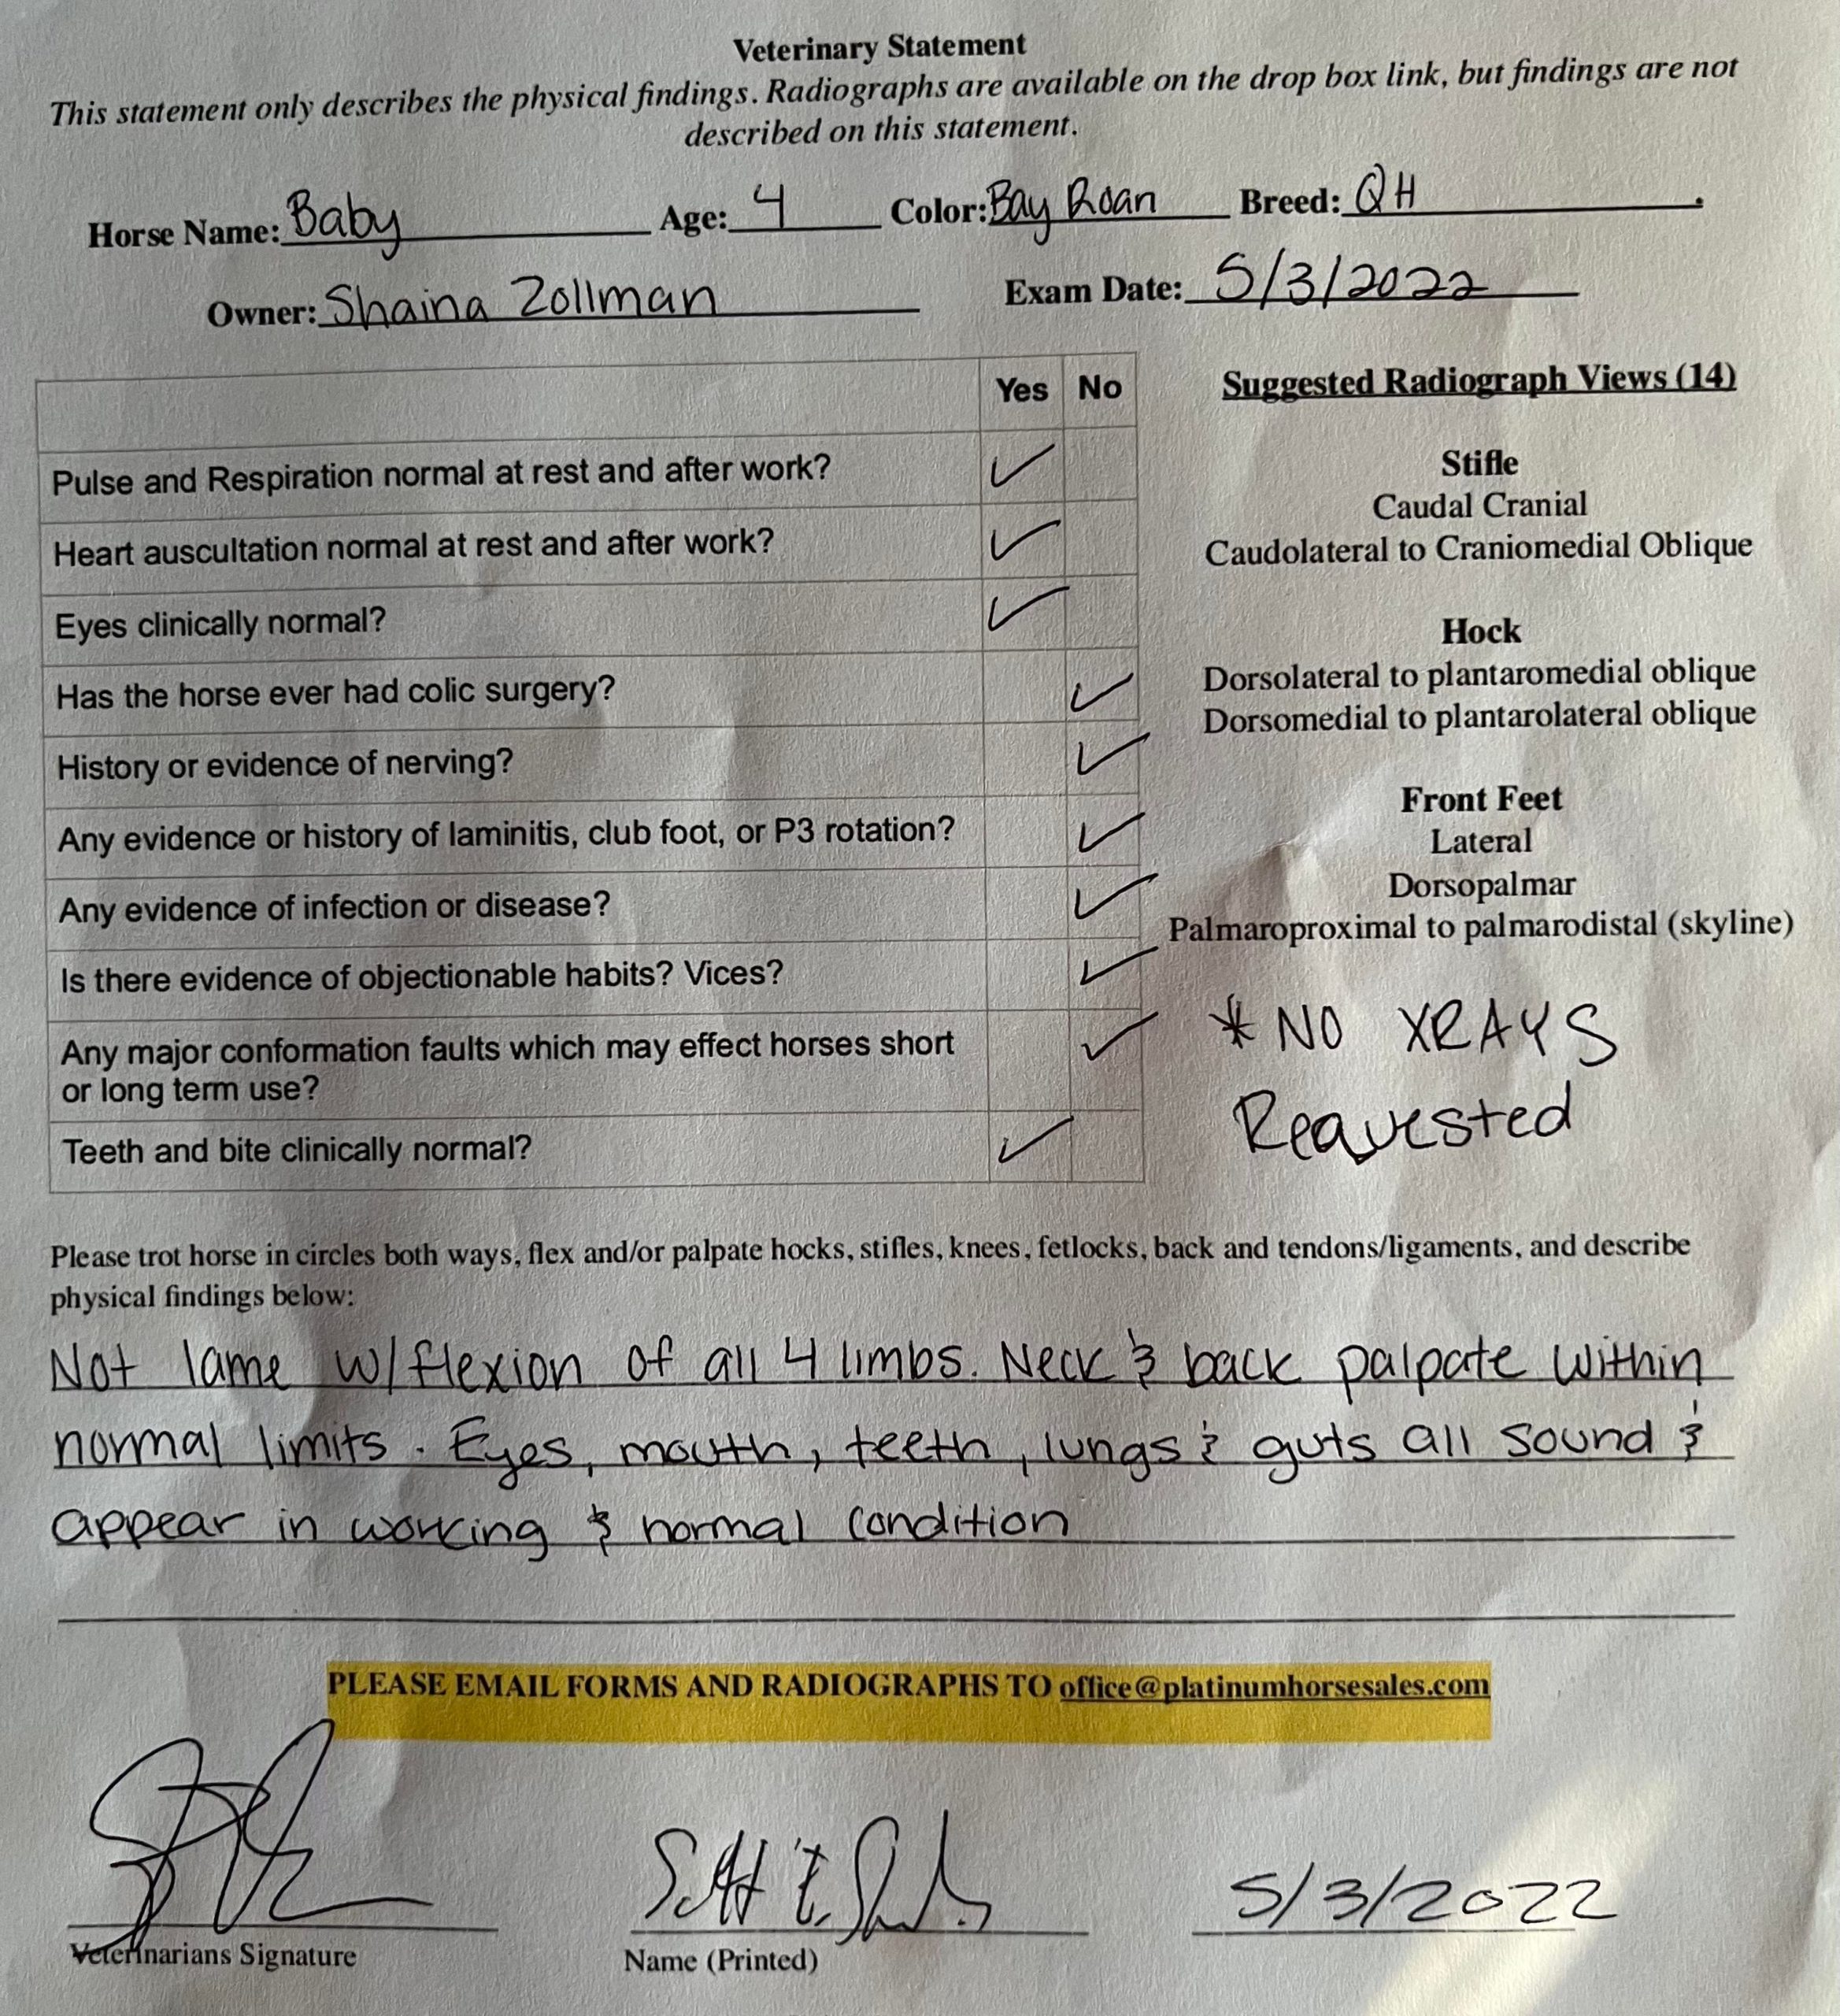 Veterinary Statement
This statement only describes the physical findings. Radiographs are available on the drop box link, but findings are not
described on this statement.
Horse Name: Baby Age: 4 Color: Bay Roan Breed: QH
Owner: Shaina Zollman Exam Date: 5/3/2022
Yes No
Pulse and Respiration normal at rest and after work? ✓
Heart auscultation normal at rest and after work? ✓
Eyes clinically normal? ✓
Has the horse ever had colic surgery? ✓
History or evidence of nerving? ✓
Any evidence or history of laminitis, club foot, or P3 rotation? ✓
Any evidence of infection or disease? ✓
Is there evidence of objectionable habits? Vices? ✓
Any major conformation faults which may effect horses short ✓
or long term use?
Teeth and bite clinically normal? ✓
Suggested Radiograph Views (14)
Stifle
Caudal Cranial
Caudolateral to Craniomedial Oblique
Hock
Dorsolateral to plantaromedial oblique
Dorsomedial to plantarolateral oblique
Front Feet
Lateral
Dorsopalmar
Palmaroproximal to palmarodistal (skyline)
* NO XRAYS
Requested
Please trot horse in circles both ways, flex and/or palpate hocks, stifles, knees, fetlocks, back and tendons/ligaments, and describe
physical findings below:
Not lame w/flexion of all 4 limbs. Neck & back palpate within
normal limits. Eyes, mouth, teeth, lungs & guts all sound &
appear in working & normal condition
PLEASE EMAIL FORMS AND RADIOGRAPHS TO office@platinumhorsesales.com
Scott E. 5/3/2022
Veterinarians Signature Name (Printed)